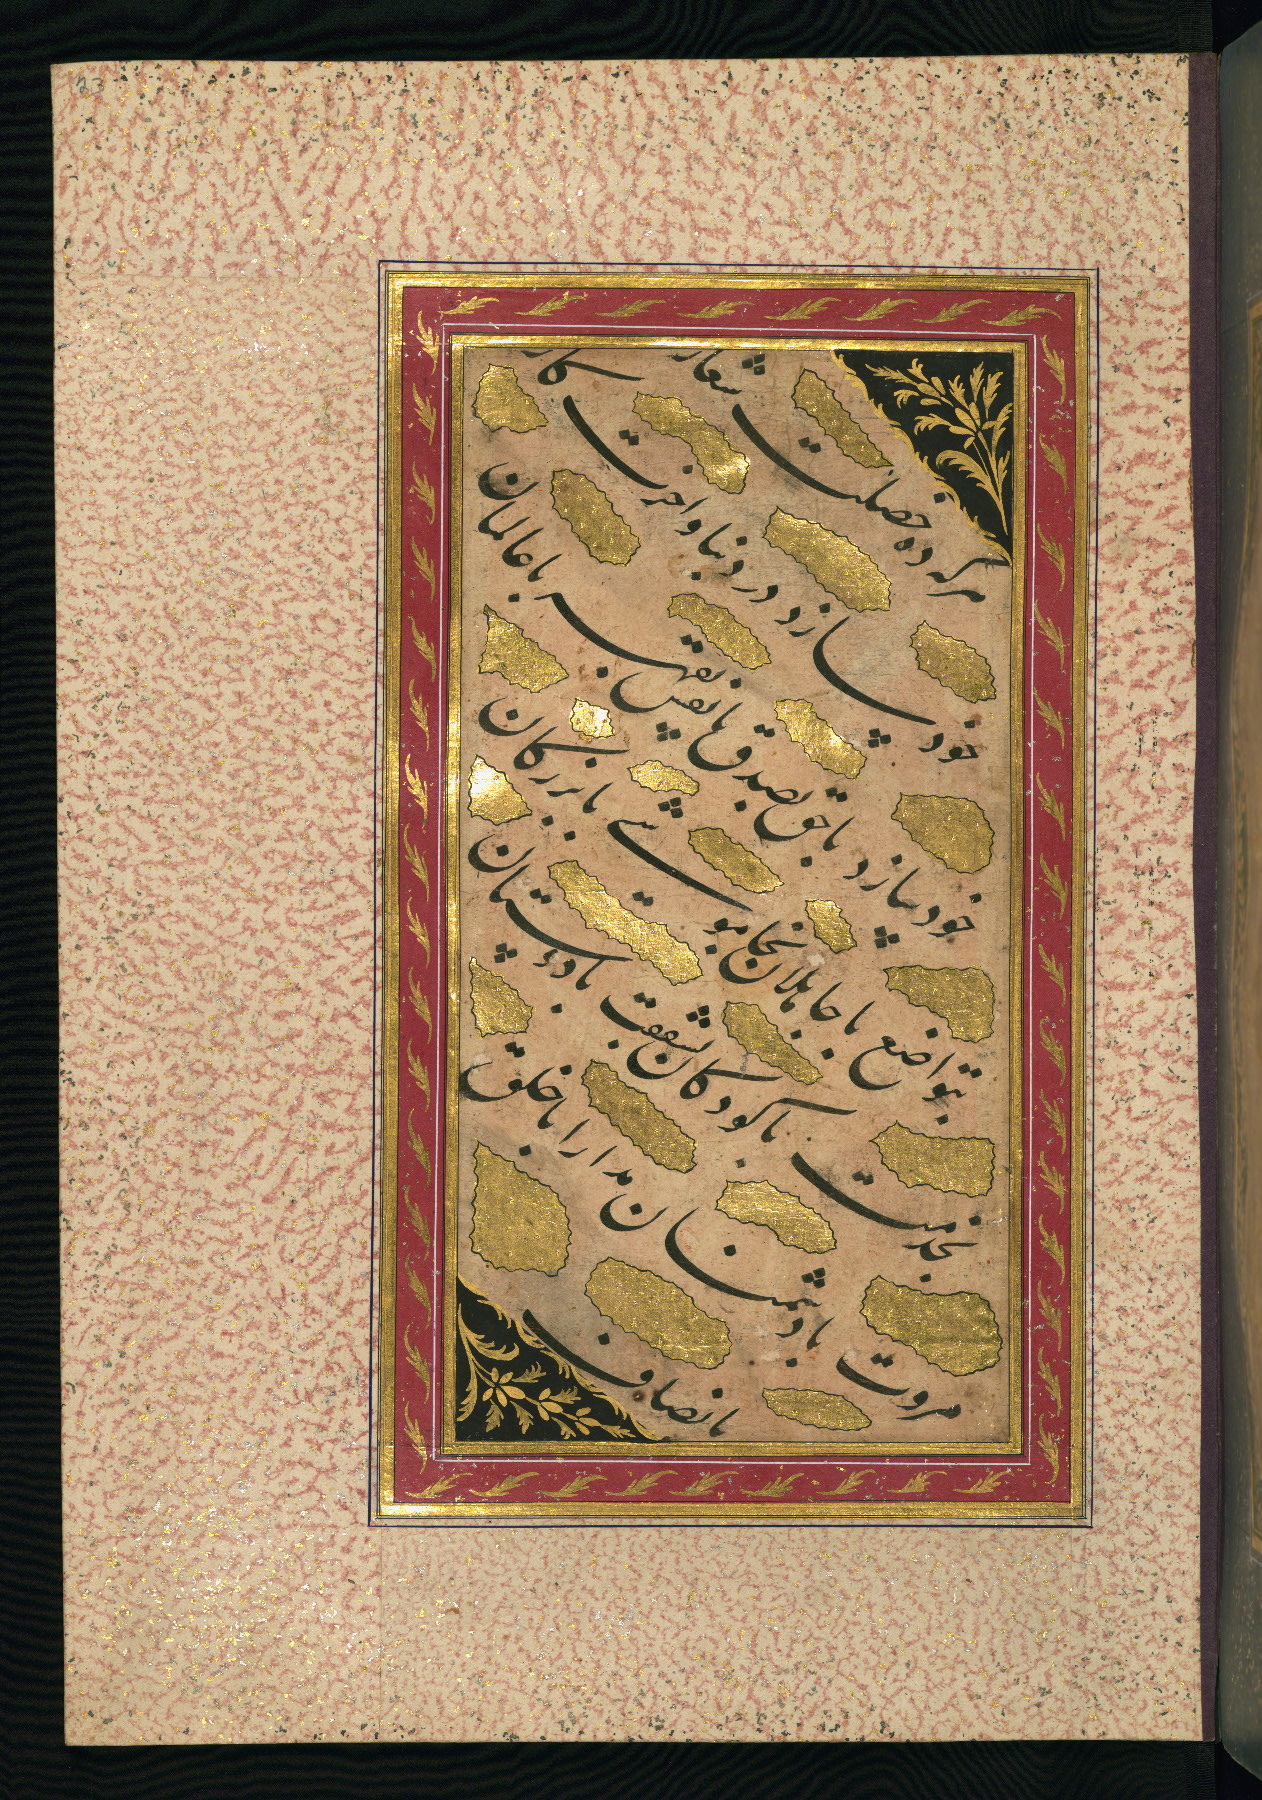 23
هرکه ده خصلت شعار
خود سازد در دنیا و اخرت کار
خود سازد با حق بصدق با نفس بقهر با عالمان
بتواضع با جاهلان بخاموشی با بزرگان
بخدمت با کودکان بشفقت با دوستان
مروت با دشمنان مدارا با خلق
بانصاف